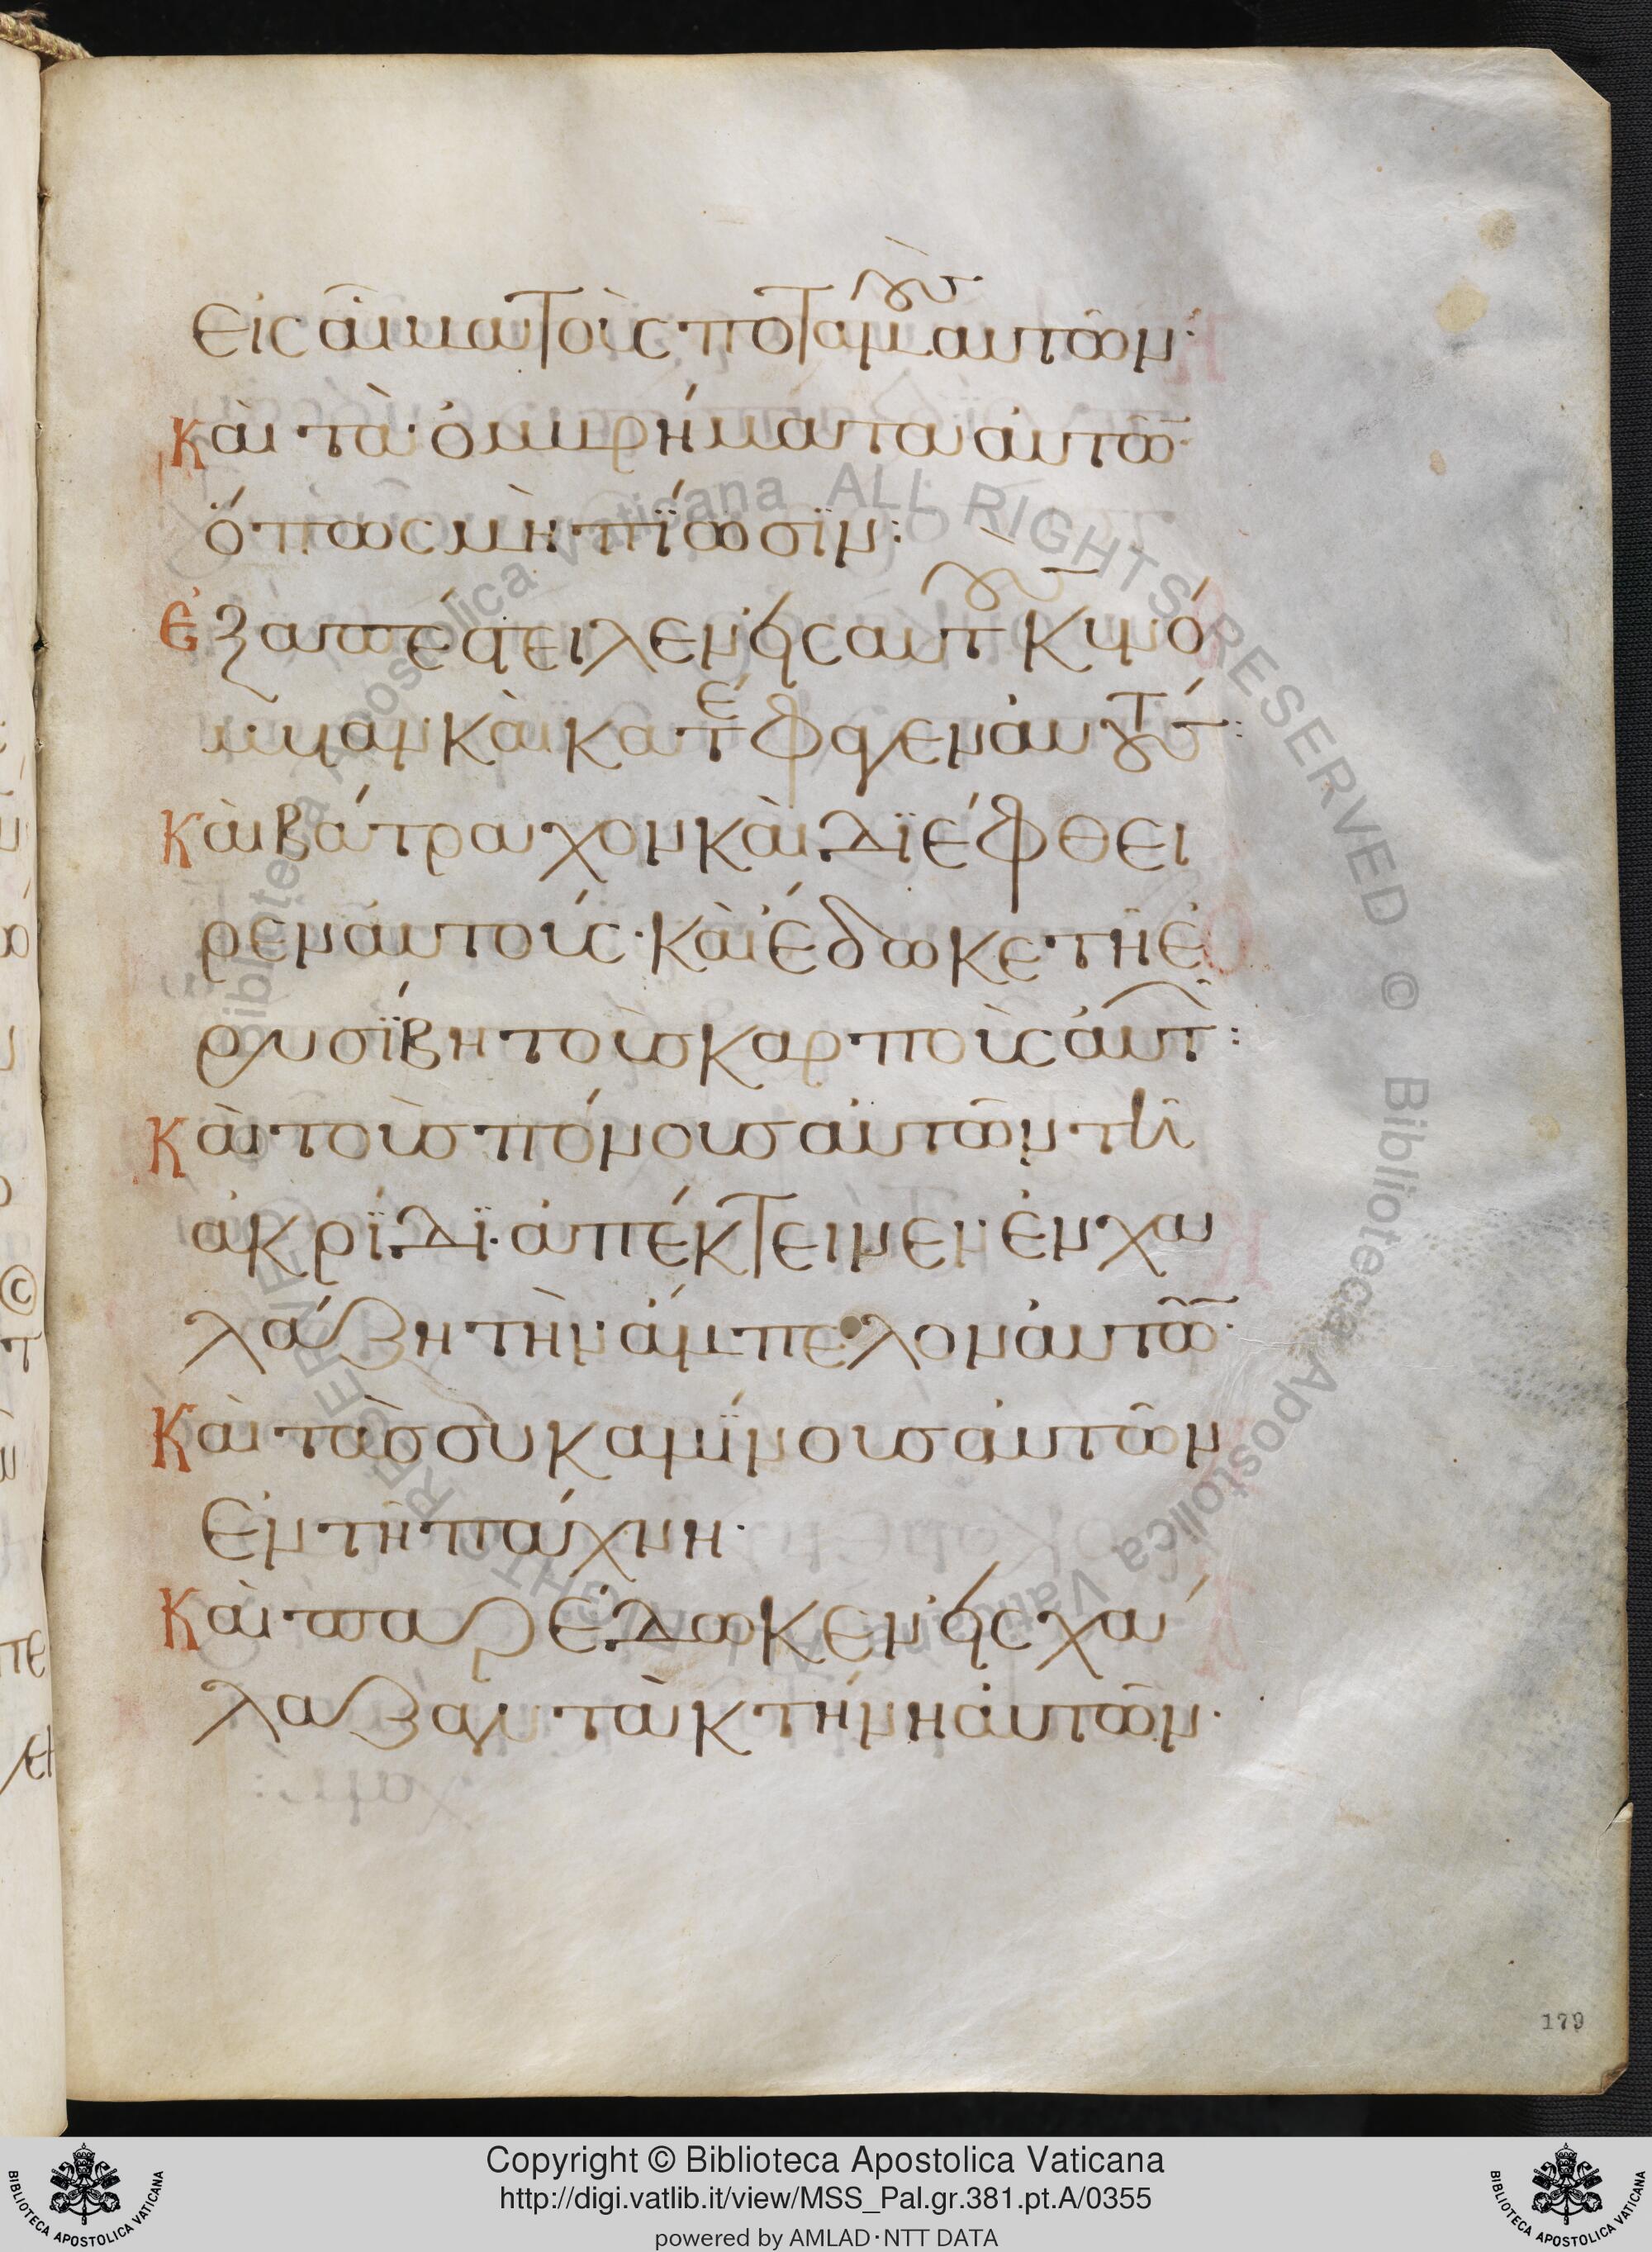 εἰς αἷμα τοὺς ποταμοὺς αὐτῶν·
Καὶ τὰ ὀμβρήματα αὐτῶ·
ὅπως μὴ πΐωσϊν:
Ἐξαπέστειλεν εἰς αὐτοὺς κυνό
μυιαν καὶ κατέφαγεν αὐτούς:
Καὶ βάτραχον καὶ δϊέφθει
ρεν αὐτούς· καὶ ἔδωκε τῆ ἐ
ρυσΐβη τοὺς καρποὺς αὐτ:
Καὶ τοὺς πόνους αὐτῶν τῆ
ἀκρΐδϊ· ἀπέκτεινεν ἐν χα
λάζη τὴν ἄμπελον αὐτῶ·
Καὶ τὰς συκαμΐνους αὐτῶν
ἐν τῆ πάχνη·
Καὶ παρέδωκεν εἰς χά
λαζαν τὰ κτήνη αὐτῶν·
179
Biblioteca Apostolica Vaticana ALL RIGHTS RESERVED © Biblioteca Apostolica Vaticana ALL RIGHTS RESERVED ©
Copyright © Biblioteca Apostolica Vaticana
http://digi.vatlib.it/view/MSS_Pal.gr.381.pt.A/0355
powered by AMLAD·NTT DATA
BIBLIOTECA APOSTOLICA VATICANA
BIBLIOTECA APOSTOLICA VATICANA